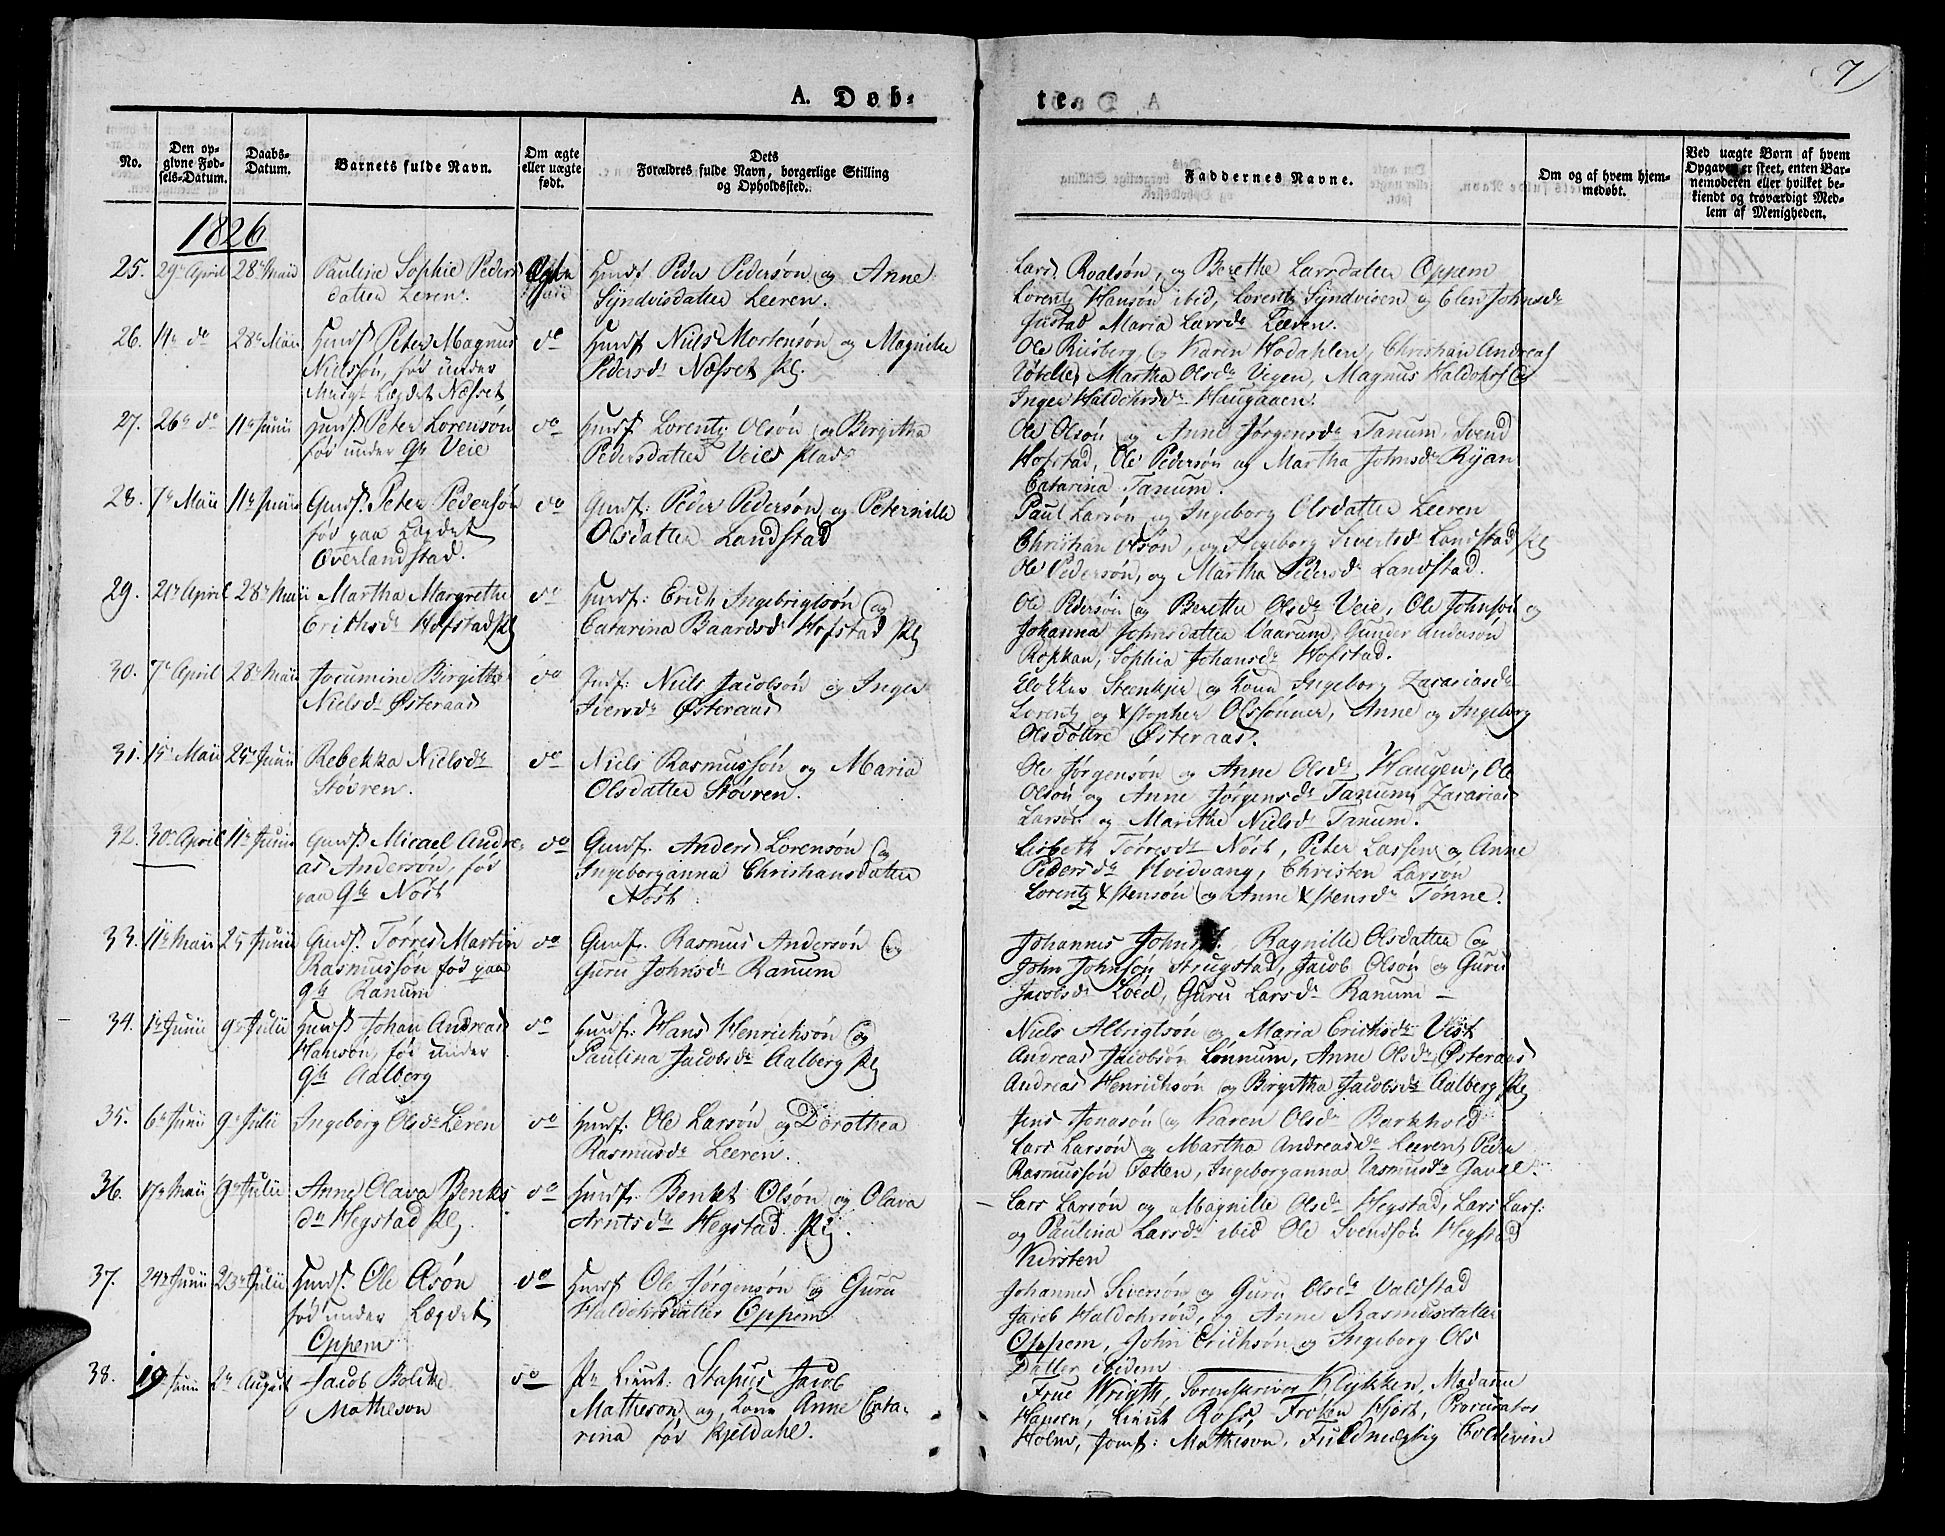 7
A. Døb-
te.
No.
Den op-
givne Fød-
sels-Datum.
Daabs-
Datum.
Barnets fulde Navn.
Om ægte
eller uægte
født.
Dets
Forældres fulde Navn, borgerlige Stilling
og Opholdssted.
Faddernes Navne.
Om og af hvem hjem-
medøbt.
Ved uægte Børn af hvem
Opgaven er skeet, enten Bar-
nemoderen eller hvilket be-
kiendt og troværdigt Med-
lem af Menigheden.
1826
25. 29de April 28de Maii Pauline Sophie Peders
datter Leren.
Ægte
Huusf. Peder Pedersøn og Anne
Syndvisdatter Leeren.
Lars Roalsøn, og Berethe Larsdatter Oppem
Lorentz Hansøn ibid, Lorentz Syndvisen og Elen Johnsdr
Justad Maria Larsdr Leeren.
26. 14de do 28de Maii Huusf Peter Magnus
Nielsøn, fød under
Musgt Lægdet Næsset
do
Huusf Niels Mortensøn og Magnilde
Pedersdr Næsset Pl.
Ole Riisberg og Karen Hodahlen, Christian Andreas
Martha Olsdr Vegen, Magnus Haldohrs og
Inger Haldohrsdr Haugaaen.
27. 26de do 11te Junii Huusf Peter Lorensøn
fød under Gde Veie
do
Huusf Lorentz Olsøn og Birgitha
Pedersdatter Veies plads
Ole Olsøn og Anne Jørgensdr Tanum, Svend
Hofstad, Ole Pedersøn og Martha Johnsdr Ryan
Catarina Tanum.
28. 7de Maii 11te Junii Gmdsf. Peter Pedersøn
fød paa Lægdet
Overlandstad.
do
Gmdsf: Peder Pedersøn og Peternille
Olsdatter Landstad
Paul Larsøn og Ingeborg Olsdatter Leeren
Christian Olsøn, og Ingeborg Sivertsdr Landstad Pl
Ole Pedersøn, og Martha Pedersdr Landstad.
29. 21de April 28de Maii Martha Margrethe
Erichsdr Hofstad Pl
do
Huusf: Erich Ingebrigtsøn og
Catarina Baardsdr Hofstad Pl
Ole Pedersøn og Berethe Olsdr Veie, Ole Johnsøn og
Johanna Johnsdatter Vaarum, Gunder Andersøn
Rokkan, Sophia Johansdr Hofstad.
30. 7de April 28de Maii Jocumine Birgitha
Nielsdr Østeraas
do
Indf: Niels Jacobsøn og Inger
Iversdr Østeraas
Klokker Steenkjer og Kone Ingeborg Zacariasdr
Lorentz og Xstopher Olssønner, Anne og Ingeborg
Olsdøttre Østeraas.
31. 15de Maii 25de Junii Rebekka Nielsdr
Støvren.
do
Niels Rasmussøn og Maria
Olsdatter Støvren.
Ole Jørgensøn og Anne Olsdr Haugen, Ole
Olsøn og Anne Jørgensdr Tanum, Zacarias
Larsøn og Marithe Nielsdr Tanum.
32. 30de April 11te Junii Gmdsf Micael Andre-
as Andersøn, fød
paa Gde Nøst
do
Gmdsf. Anders Lorensøn og
Ingeborganna Christiansdatter
Nøst.
Lisbeth Torresdr Nøst, Peter Larsen og Anne
Pedersdr Hvidvang, Christen Larsøn
Lorentz Xstensøn og Anne Xstensdr Tønne.
33. 11te Maii 25 Junii Gmdsf. Torres Martin
Rasmussøn fød paa
Gde Ranum
do
Gmdsf. Rasmus Andersøn og
Guru Johnsdr Ranum
Johannes Ragnille Olsdatter og
John Johnsøn Strugstad, Jacob Olsøn og Guru
Jacobsdr Loëd, Guru Larsdr Ranum —
34. 1te Junii 9de Julii Huusf Johan Andreas
Hansøn, fød under
Gde Aalberg
do
Huusf: Hans Henrichsøn og
Paulina Jacobsdr Aalberg Pl
Niels Albrigtsøn og Maria Erichsdr Vist
Andreas Jacobsøn Lønnum, Anne Olsdr Østeraas
Andreas Henrichsøn og Birgitha Jacobsdr Aalberg Pl
35. 6te Junii 9de Julii Ingeborg Olsdr Leren
do
Huusf: Ole Larsøn og Dorothea
Rasmusdr Leeren.
Jens Jonasøn og Karen Olsdr Barkhold
Lars Larsøn og Martha Andreasdr Leeren, Peder
Rasmussøn Tætten, Ingeborganna Rasmusdr Gavel.
36. 17de Maii 9de Julii Anne Olava Bents
dr Hegstad Pl.
do
Huusf: Benket Olsøn og Olava
Arntsdr Hegstad Pl.
Lars Larsøn og Magnille Olsdr Hegstad, Lars Lars:
og Paulina Larsdr ibid Ole Svendsøn Hegstad
Kirsten
37. 24de Junii 23de Julii Huusf. Ole Olsøn
fød under Lægdet
Oppem
do
Huusf Ole Jørgensøn og Guru
Haldohrsdatter Oppem
Johannes Siversøn og Guru Olsdr Valdstad
Jacob Haldohrsøn, og Anne Rasmusdatter
Oppem, John Erichsøn og Ingeborg Ols
Datter ibidem
38. 19 Junii 2de August Jacob Bolthe
Matheson
do
Pr Lieut: Stapus Jacob
Matheson og Kone Anne Cata-
rina fød Kjeldahl.
Frue Wrigth, Sorenskriver Klykken, Madame
Hansen, Lieut Ross, Frøken Hjort, Procurator
Holm, Jomf: Matheson, Fuldmægtig Coldevin